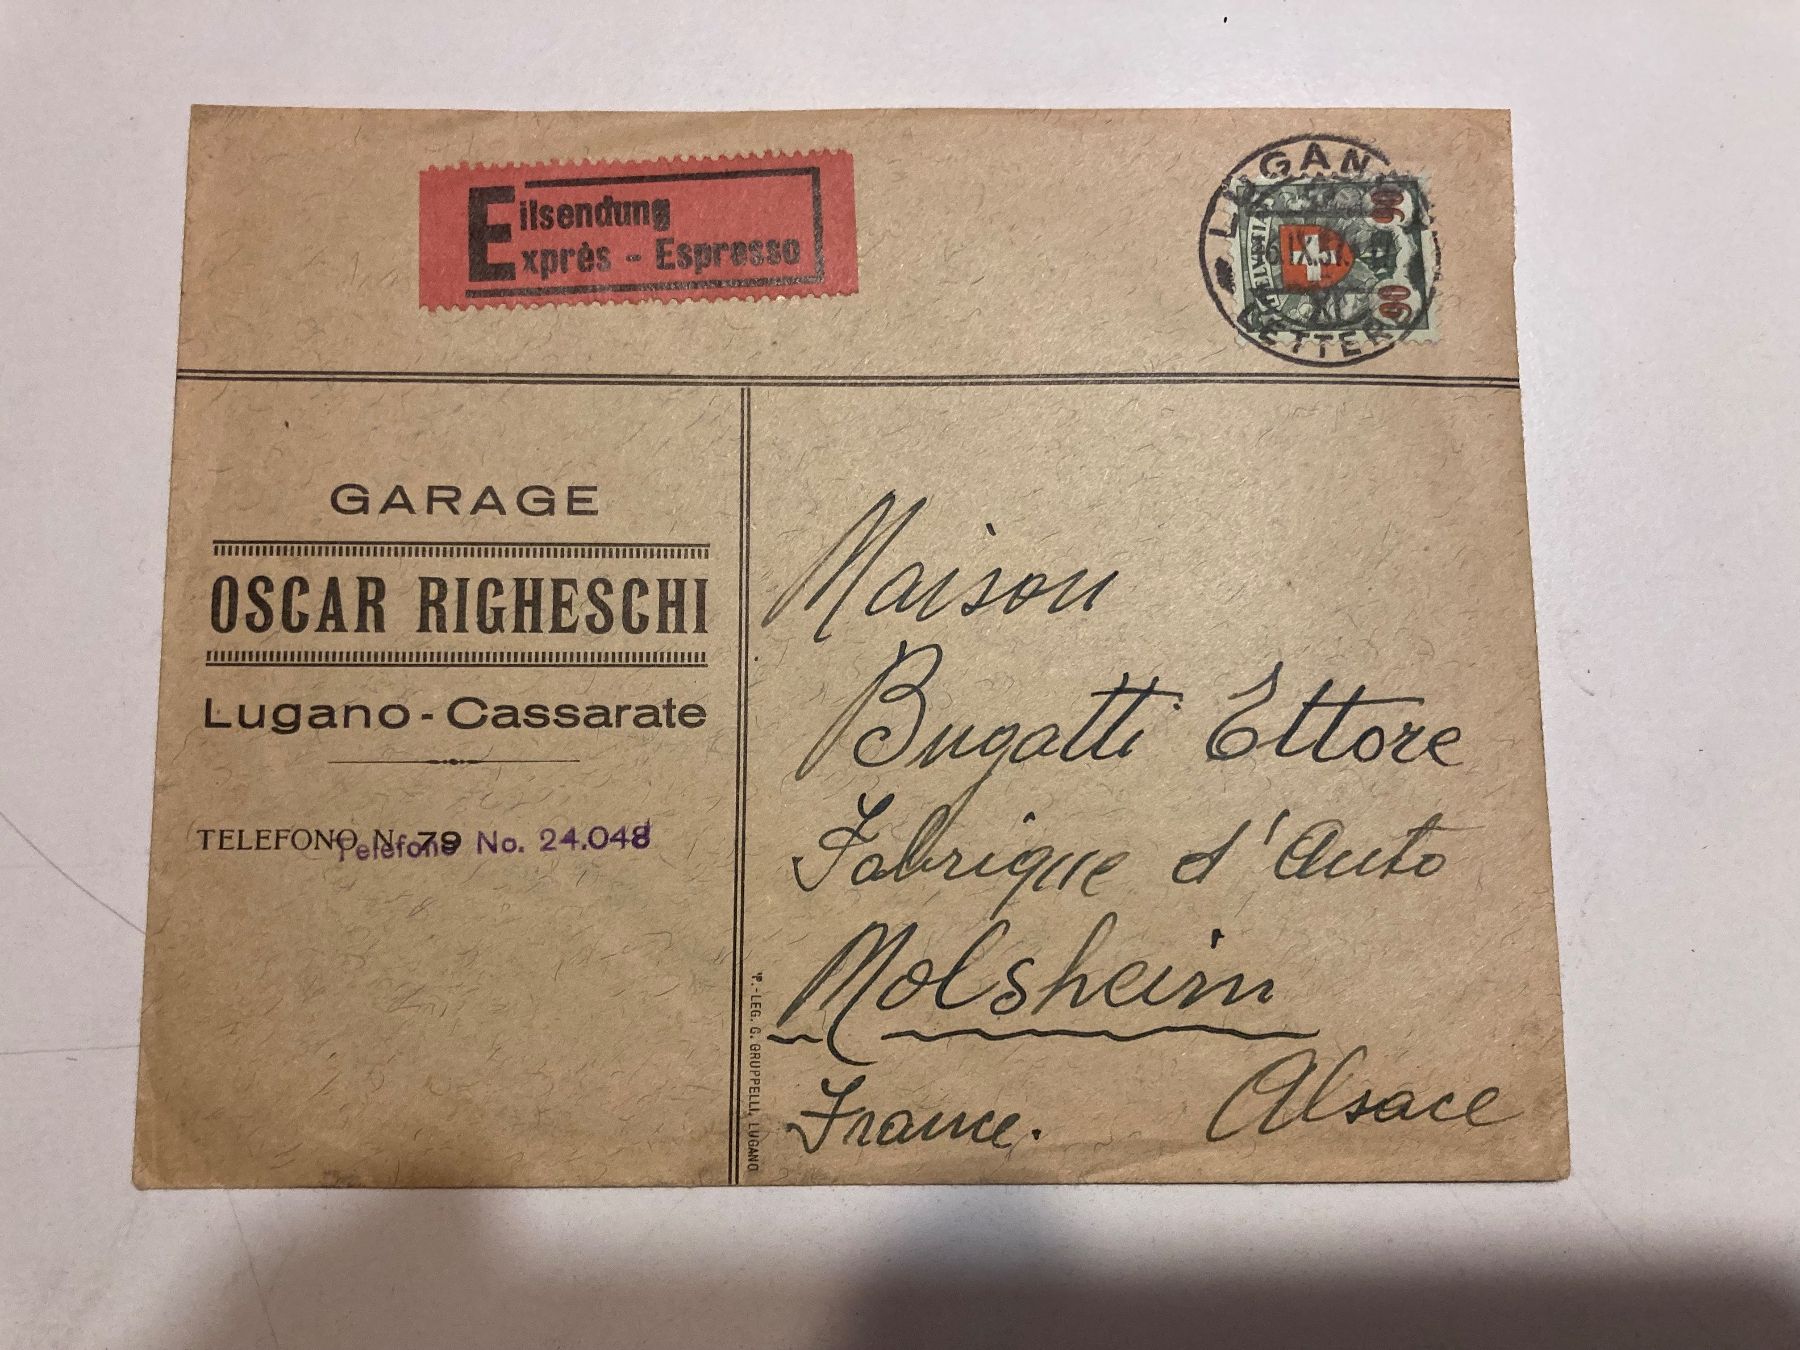 Eilsendung
Exprès - Espresso
LUGANO
LETTERE
90
90
GARAGE
OSCAR RIGHESCHI
Lugano - Cassarate
TELEFONO N. 79
Telefono No. 24.048
Maison
Bugatti Ettore
Fabrique d'Auto
Molsheim
Alsace
France.
P.-LEG. G. GRUPPELLI, LUGANO